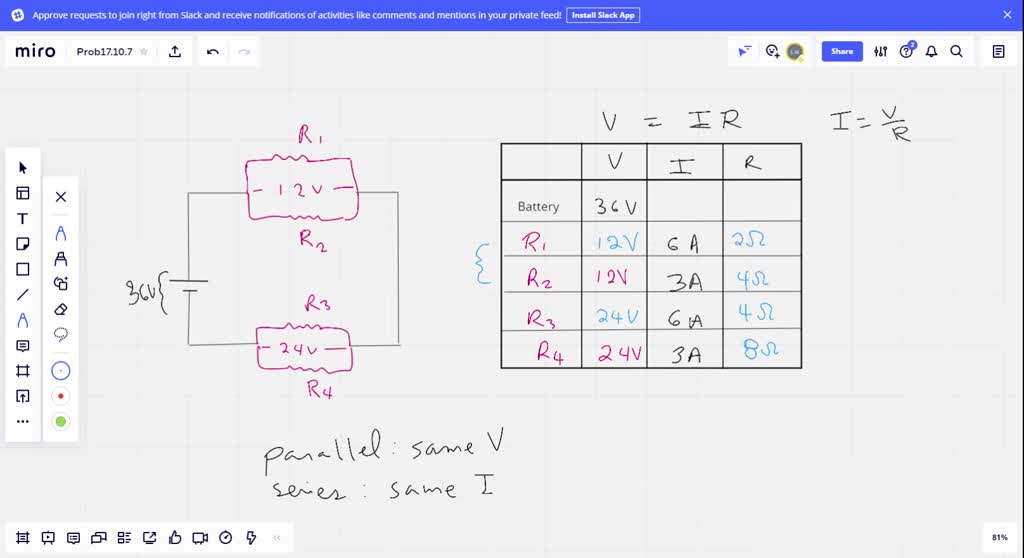 Approve requests to join right from Slack and receive notifications of activities like comments and mentions in your private feed! Install Slack App
miro Prob17.10.7 Share 2
V = I R
I = V/R
R1
- 12V -
R2
36V {
R3
- 24V -
R4
V I R
Battery 36V
R1 12V 6A 2Ω
R2 12V 3A 4Ω
R3 24V 6A 4Ω
R4 24V 3A 8Ω
parallel: same V
series: same I
81%